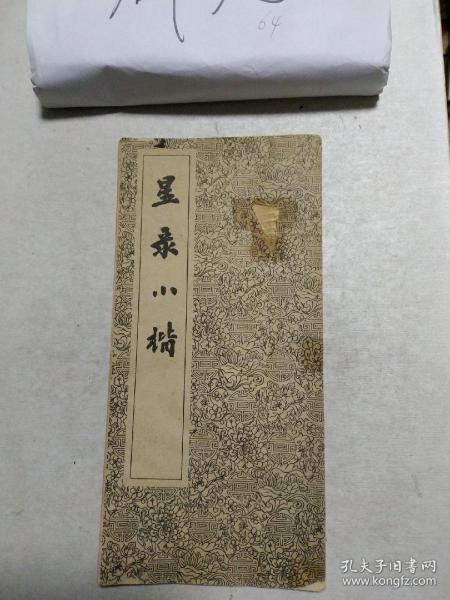 64
星录小楷
孔夫子旧书网
www.kongfz.com